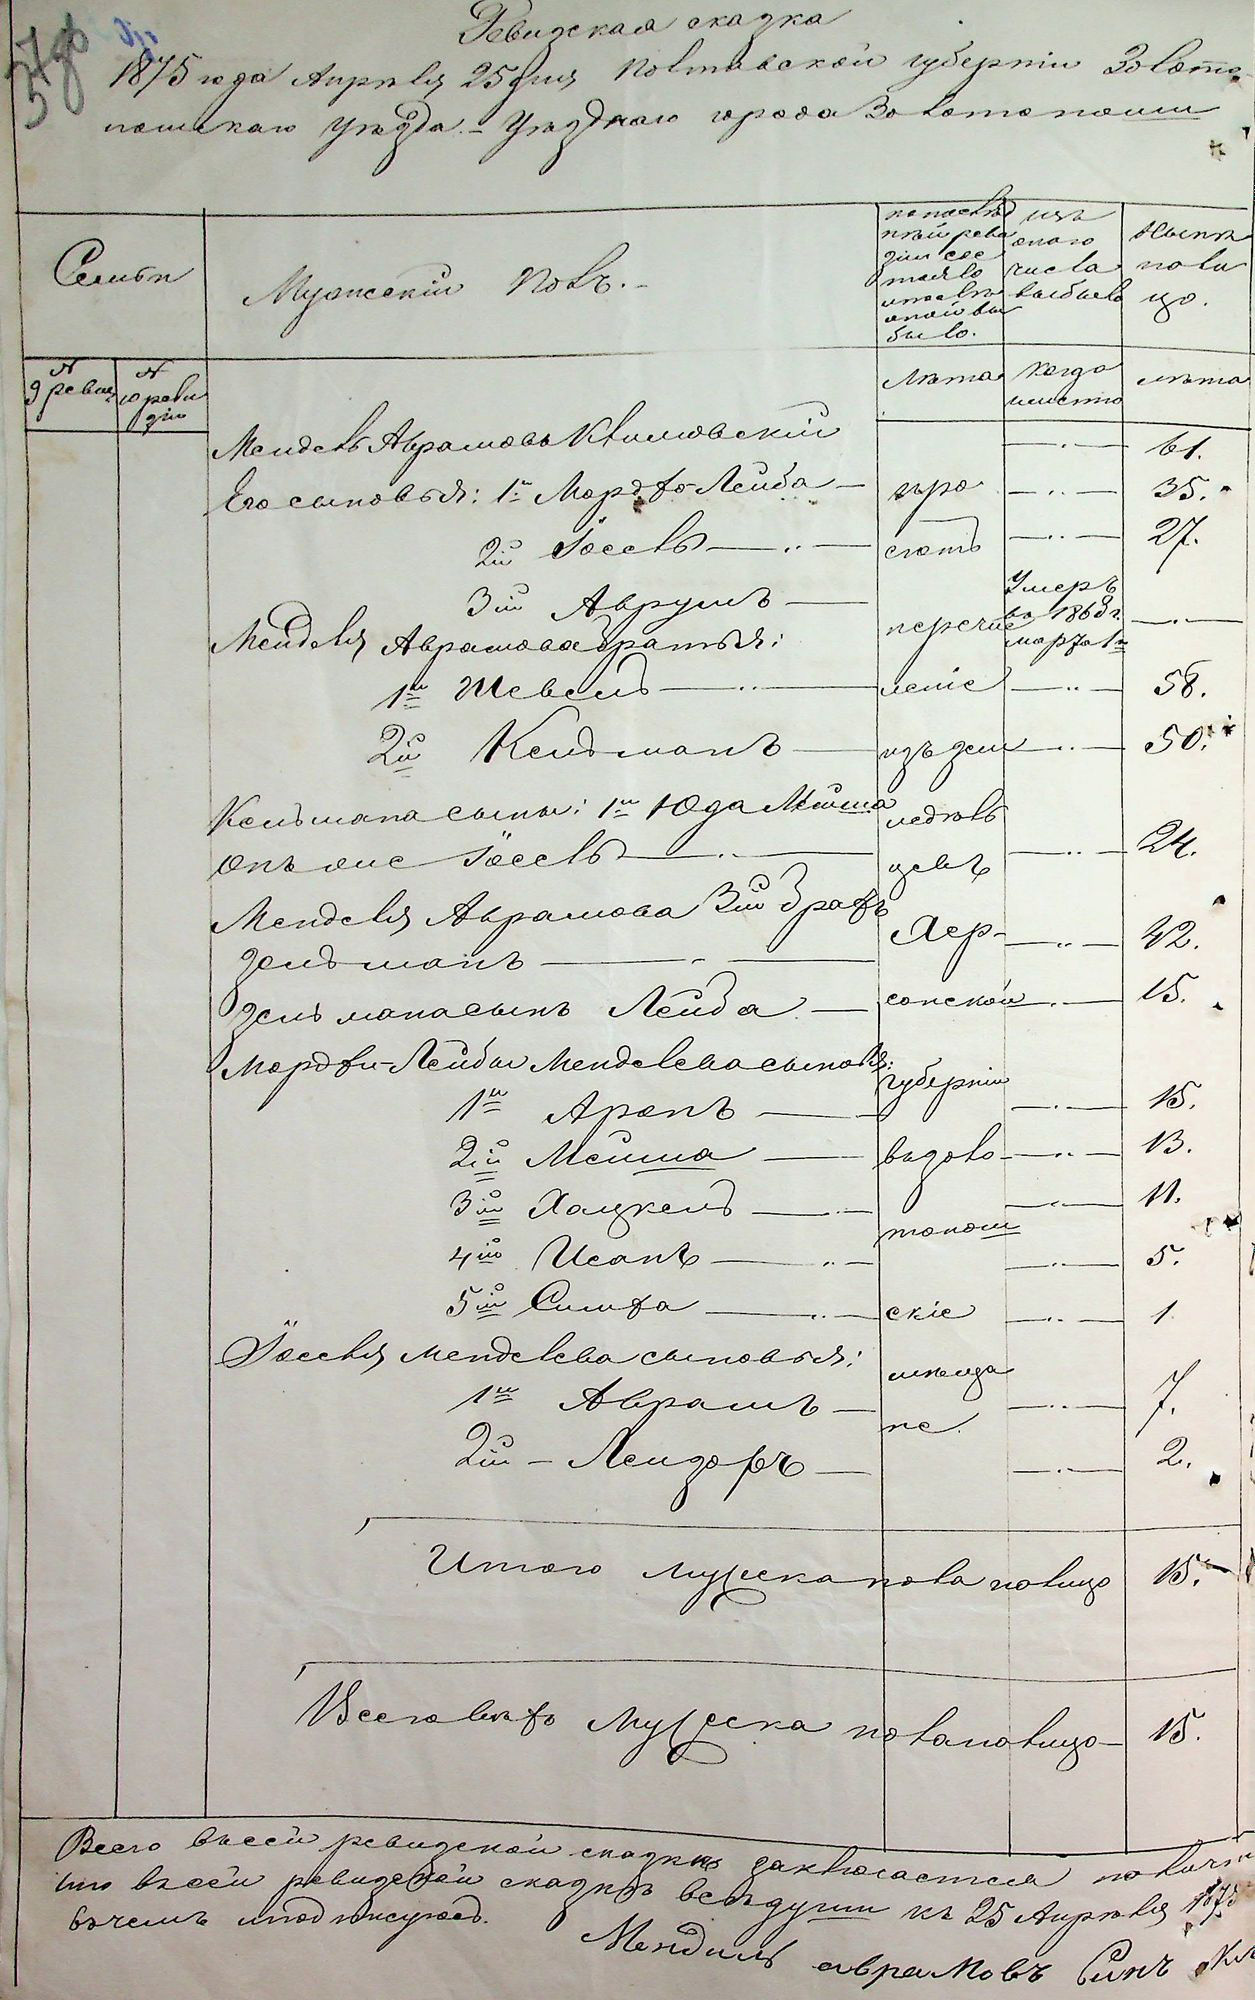 Ревизская сказка
1875 года Апрѣля 25 дня Полтавской губерніи Золото-
ношскаго Уѣзда. – Уѣзднаго города Золотоноши
Семьи
Мужескій полъ. –
по послѣд
ней реви
зіи сос
тояло
и послѣ
оной вы
было.
изъ
оного
числа
выбыло
Нынѣ
на ли
цо.
№
9 ревиз.
№
10 реви
зіи
Лѣта
Когда
именно
лѣта
Мендель Аврамовъ Климовскій
61.
Его сыновья: 1й Мордко-Лейба
при
35.
2ій Іосель
счетъ
27.
3ій Аврумъ
Умеръ
въ 1868 г.
марта 1го
Менделя Аврамова братья:
перечис
1й Шевель
леніе
58.
2ій Кельманъ
изъ зем
50.
Кельмана сынъ: 1й Юда Мейша
ледѣль
онъ же Іосель
цевъ
24.
Менделя Аврамова 3ій братъ
Хер-
Зельманъ
42.
Зельмана сынъ Лейба
сонской
15.
Мордки-Лейбы Менделева сыновья:
губерніи
1й Аронъ
15.
2ій Мейша
въ золо-
13.
3ій Хацкель
11.
тонош
4ій Исакъ
5.
5ій Симха
скіе
1
Іоселя Менделева сыновья:
мѣща
1й Аврамъ
7.
не.
2ій – Лейзоръ
2.
Итого мужеска пола на лицо
15.
Всего въ мужеска пола на лицо
15.
Всего въ сей ревизской сказкѣ заключается
что въ сей ревизской сказкѣ всѣ души къ 25 Апрѣля 1875
въ чемъ и подписуюсь.
Мендиль аврамовъ Синъ